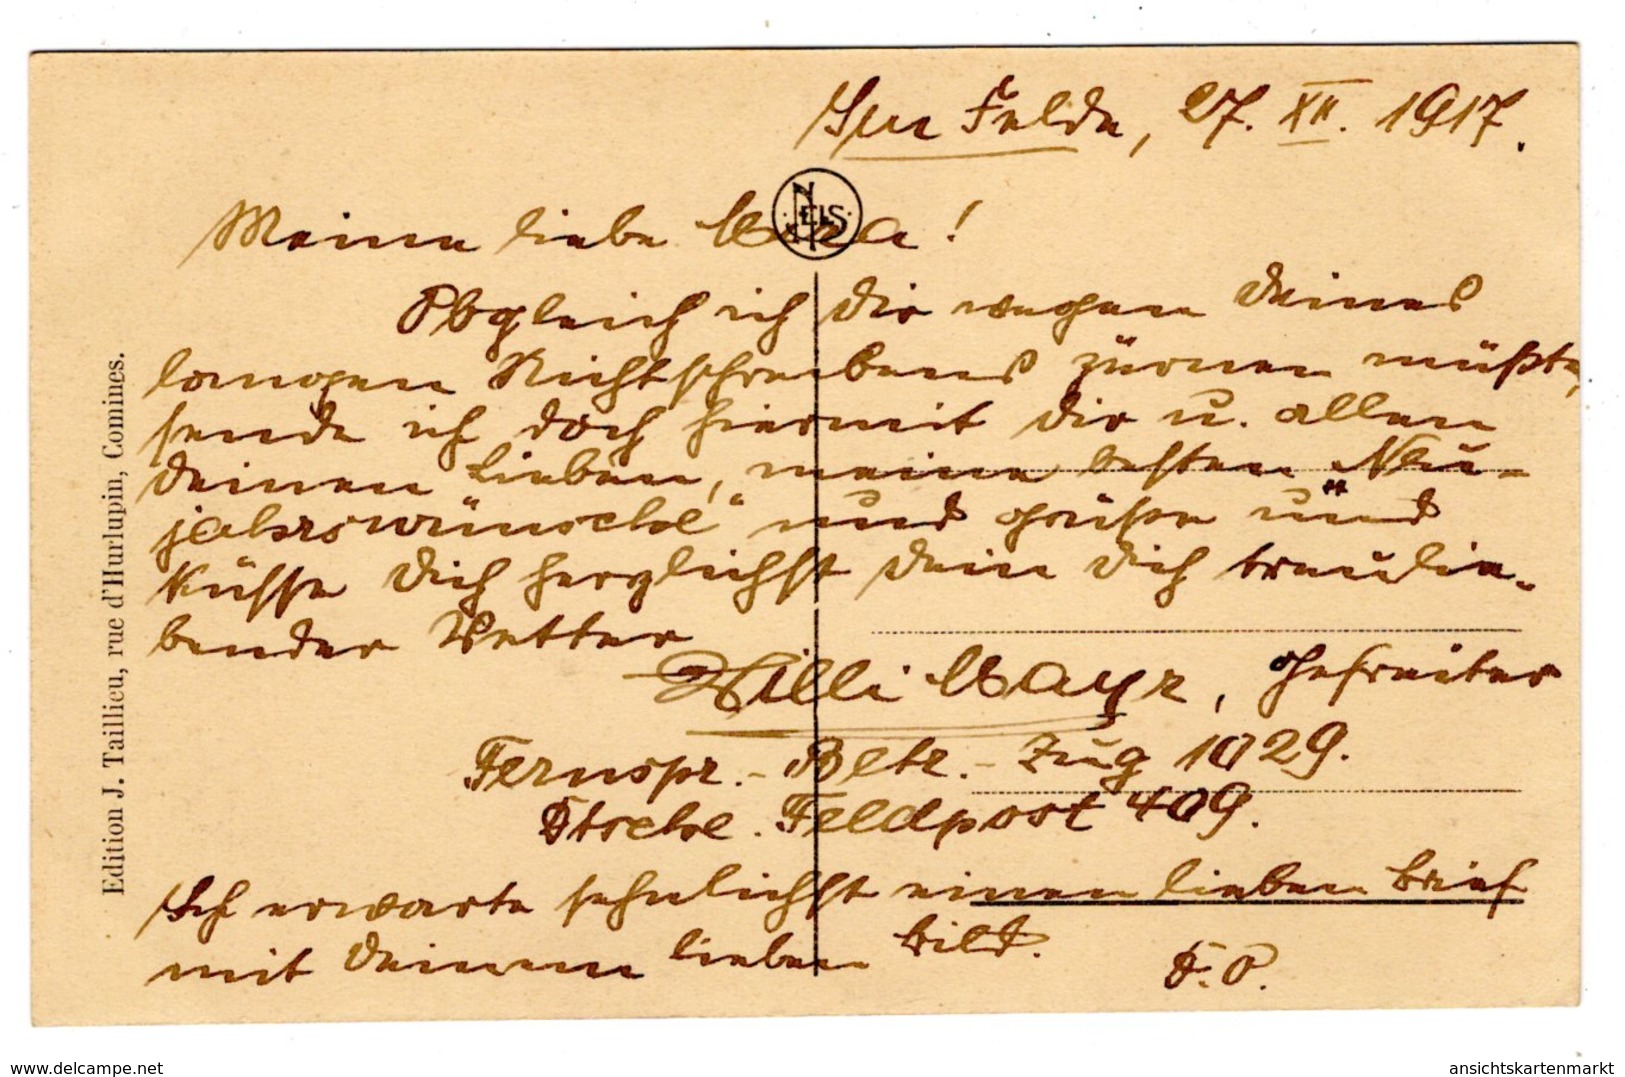 Im Felde, 27. XII. 1917.
NELS
Meine liebe !
Obgleich ich Dir wegen Deines
langen Nichtschreibens zürnen müßte,
sende ich doch hiermit Dir u. allen
Deinen Lieben, meine besten „Neu-
jahrswünsche“ und grüße und
küsse Dich herzlichst Dein Dich treulie-
bender Vetter
Willi Mayr, Gefreiter
Fernspr.-Betr.-Zug 1029.
Dtsche. Feldpost 409.
Ich erwarte sehnlichst einen lieben Brief
mit Deinem lieben Bild. D. O.
Edition J. Taillieu, rue d'Hurlupin, Comines.
www.delcampe.net
ansichtskartenmarkt